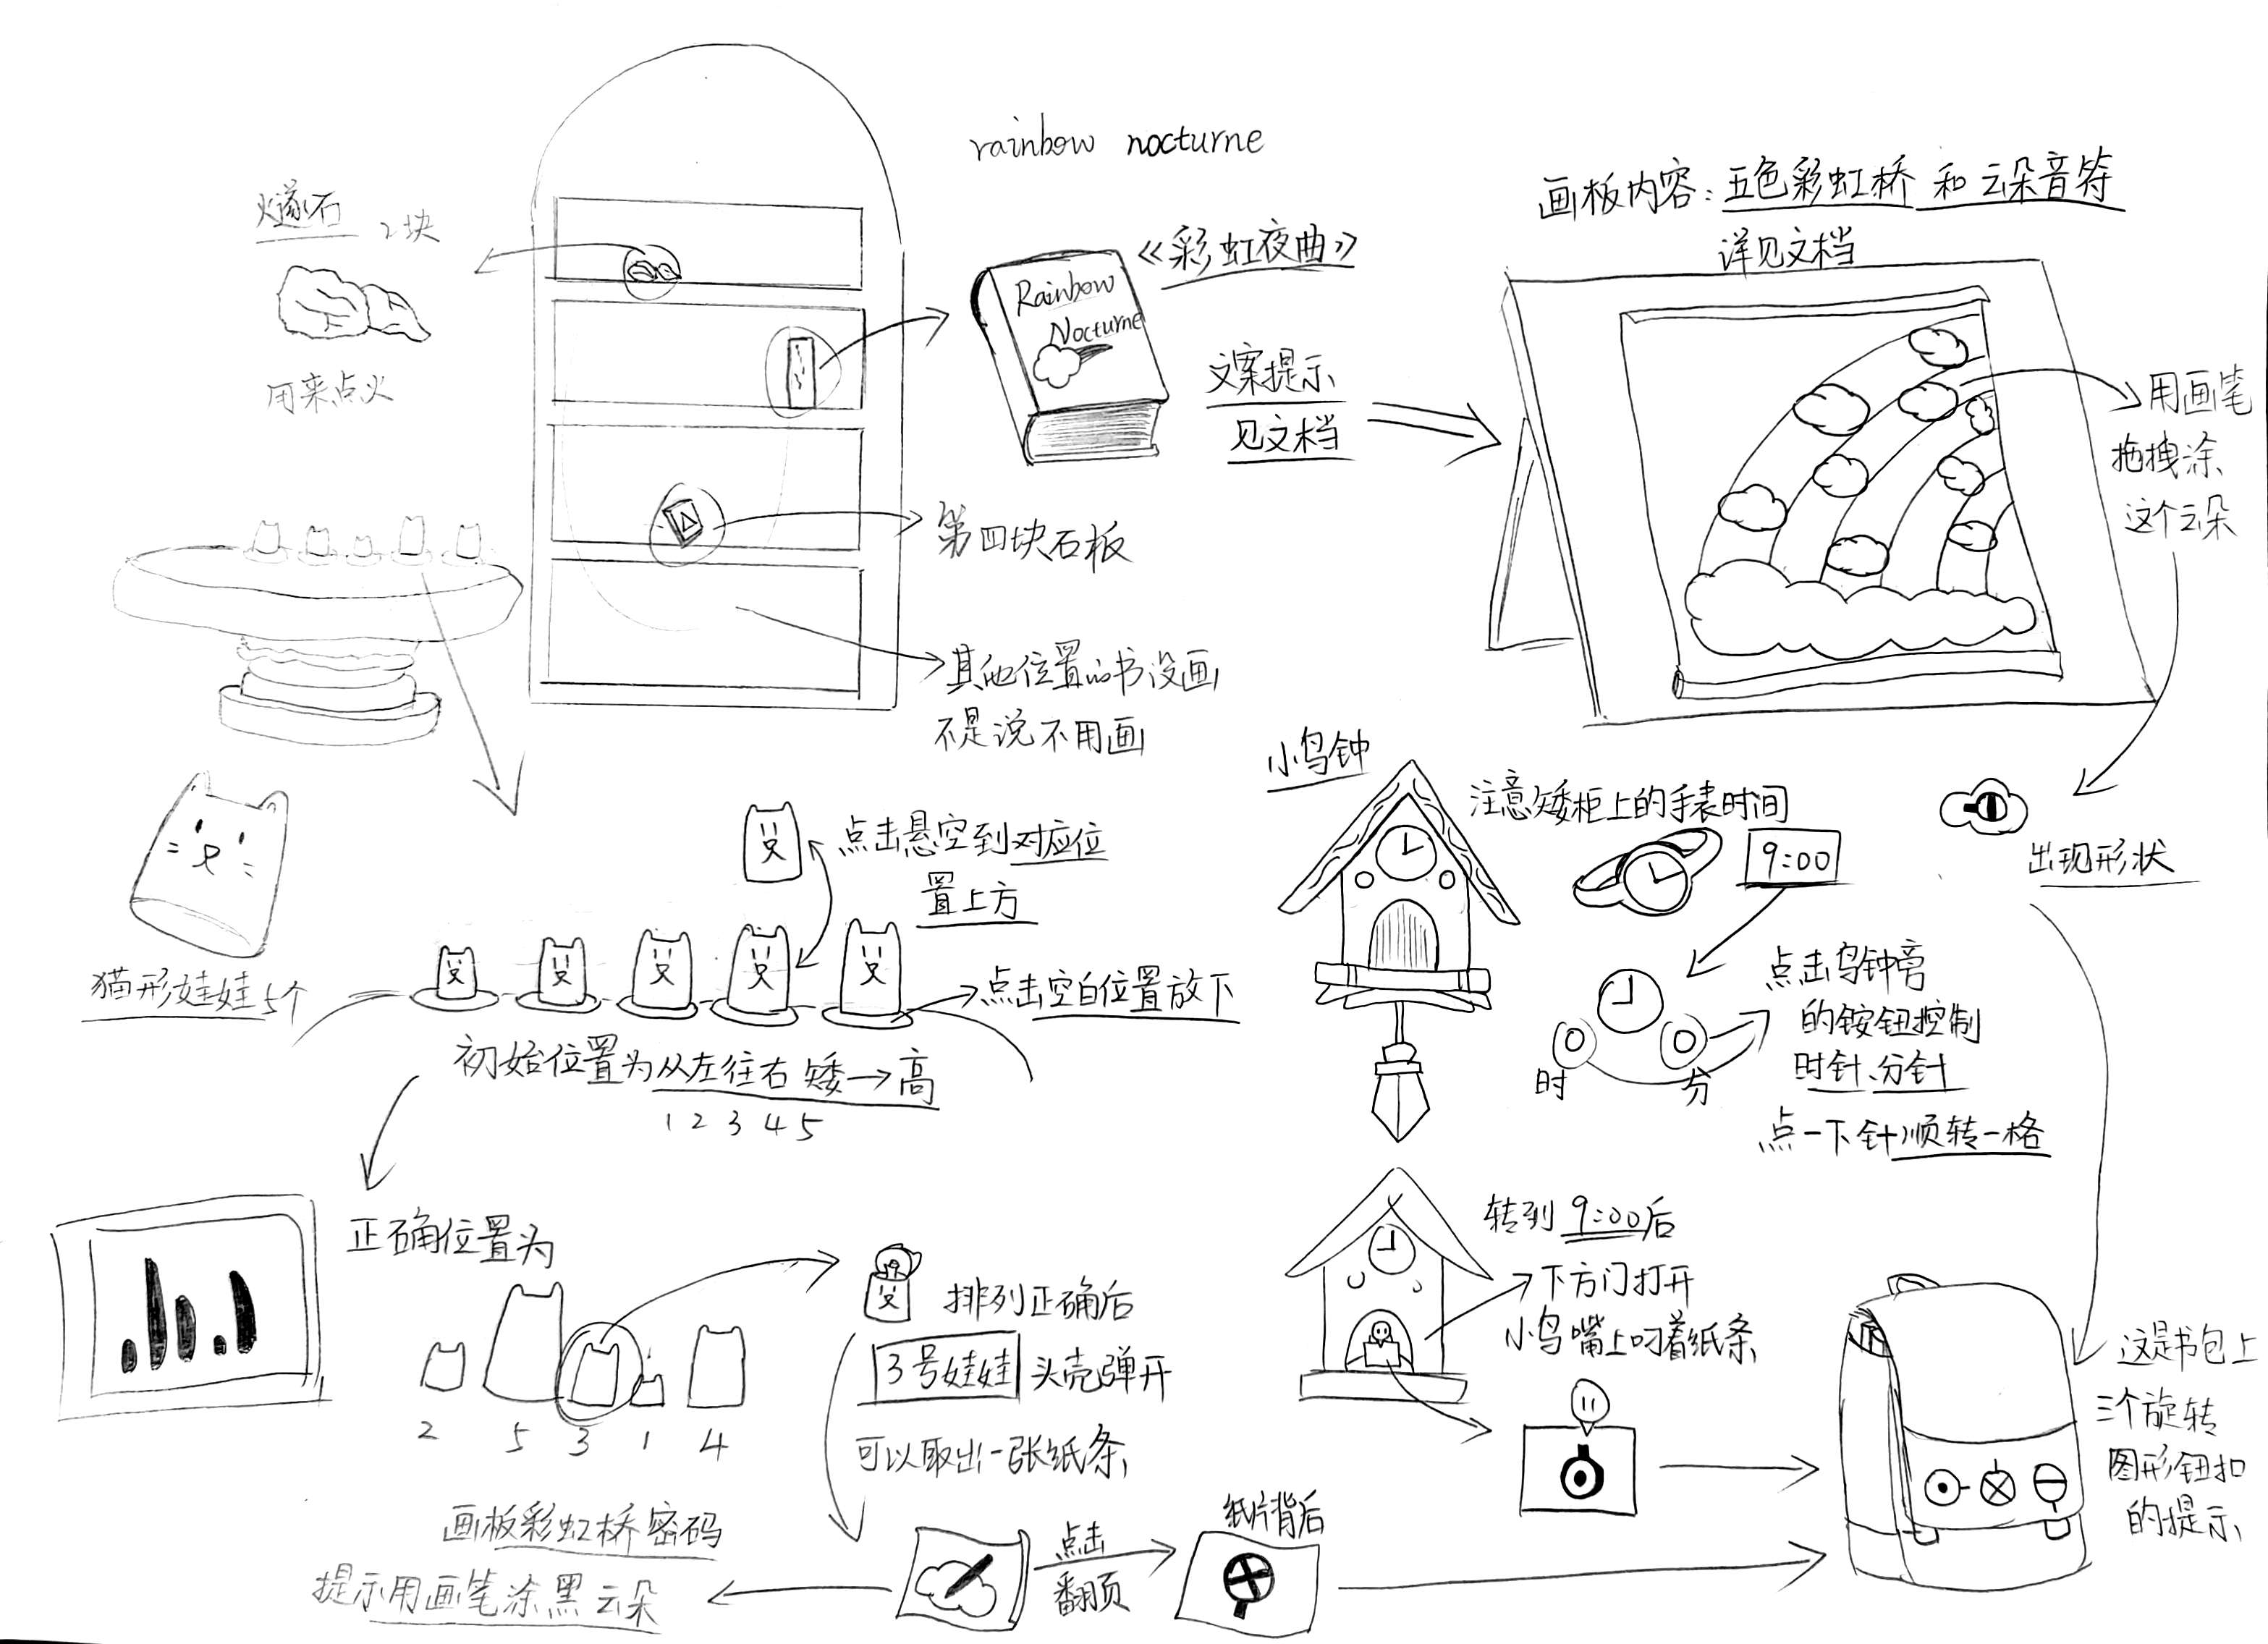 rainbow nocturne
火燧石 2块
用来点火
《彩虹夜曲》
Rainbow
Nocturne
文案提示
见文档
画板内容：五色彩虹桥 和 云朵音符
详见文档
用画笔
拖拽涂
这个云朵
出现形状
第四块石板
其他位置的书没画
不是说不用画
猫形娃娃5个
点击悬空到对应位
置上方
点击空白位置放下
初始位置为从左往右 矮→高
1 2 3 4 5
小鸟钟
注意矮柜上的手表时间
9:00
点击鸟钟旁
的铵钮控制
时针、分针
时
分
点一下针顺转一格
正确位置为
2 5 3 1 4
排列正确后
3号娃娃 头壳弹开
可以取出一张纸条
转到 9:00后
下方门打开
小鸟嘴上叼着纸条
这是书包上
三个旋转
图形钮扣
的提示
画板彩虹桥密码
提示用画笔涂黑云朵
点击
翻页
纸片背后